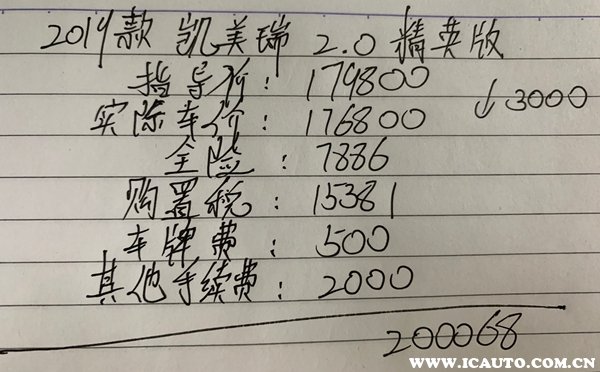 2019款 凯美瑞 2.0 精英版
指导价: 179800
↓3000
实际车价: 176800
全险: 7886
购置税: 15381
车牌费: 500
其他手续费: 2000
200068
WWW.ICAUTO.COM.CN